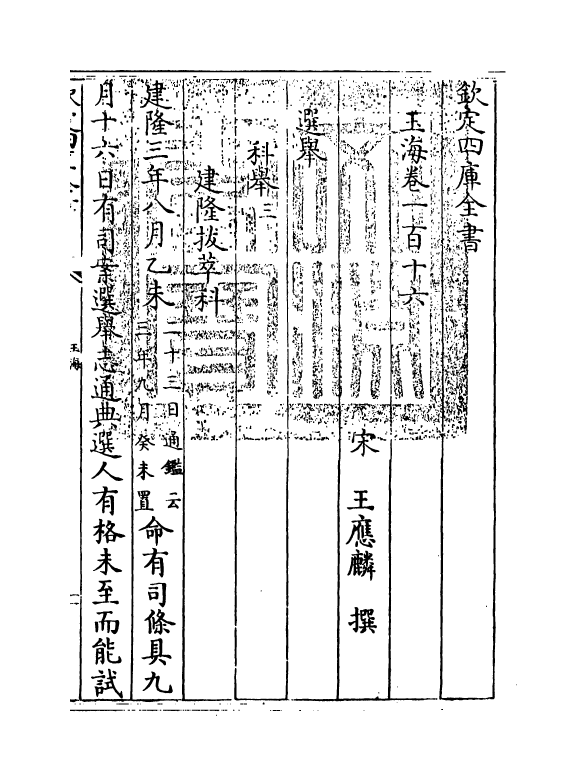 欽定四庫全書
玉海卷一百十六
宋 王應麟 撰
選舉
科舉三
建隆拔萃科
建隆三年八月乙未二十三日通鑑云三年九月癸未置命有司條具九
月十六日有司案選舉志通典選人有格未至而能試
玉海